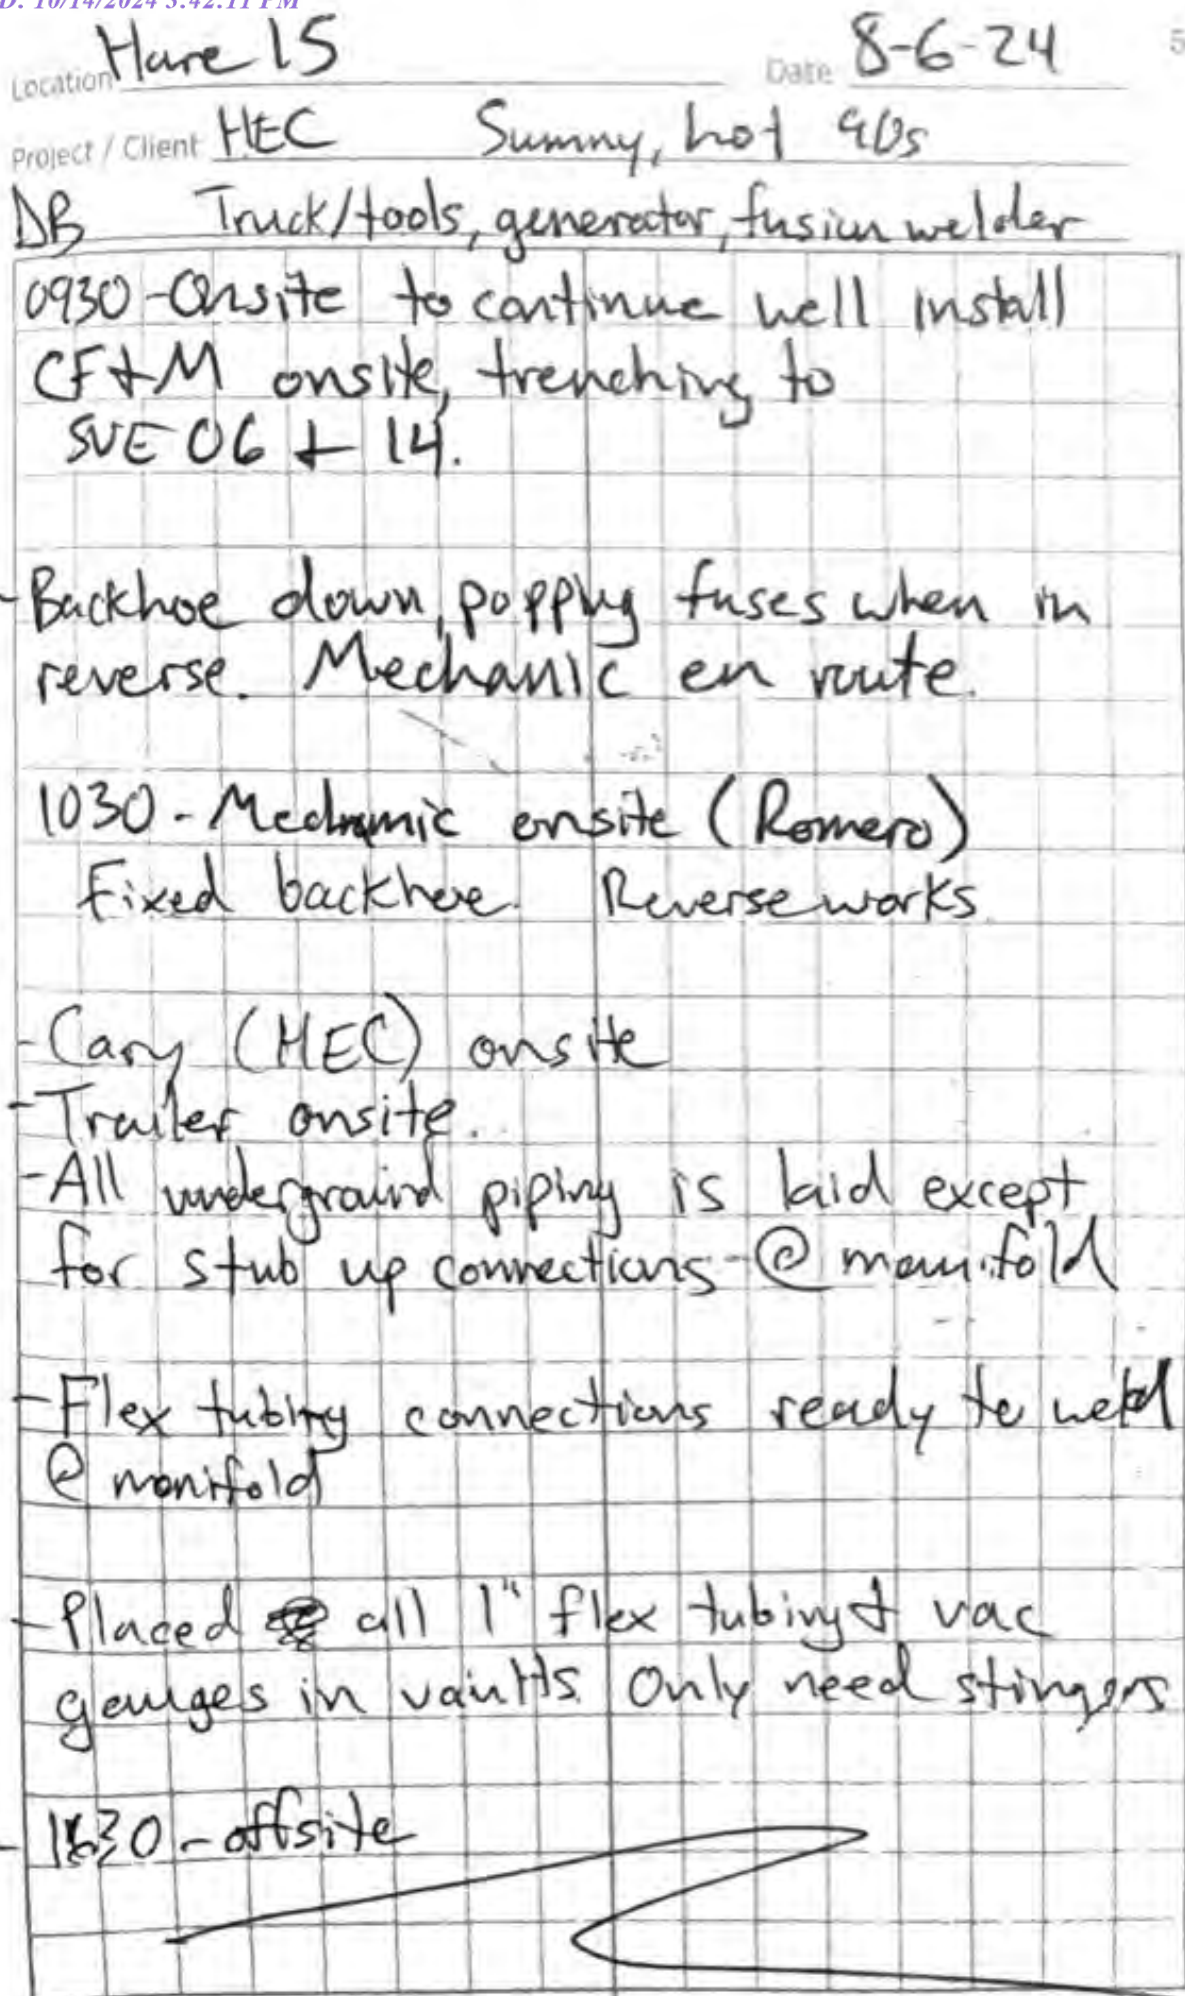 D: 10/14/2024 3:42:11 PM
Location Hare 15 Date 8-6-24 5
Project / Client HEC Sunny, hot 90s
DB Truck/tools, generator, fusion welder
0930-Onsite to continue well install
CF+M onsite, trenching to
SVE 06 + 14.
-Backhoe down, popping fuses when in
reverse. Mechanic en route.
1030-Mechanic onsite (Romero)
Fixed backhoe. Reverse works.
-Cary (HEC) onsite
-Trailer onsite.
-All underground piping is laid except
for stub up connections @ manifold
-Flex tubing connections ready to weld
@ manifold
-Placed all 1" flex tubing + vac
gauges in vaults. Only need stingers
-1630-offsite